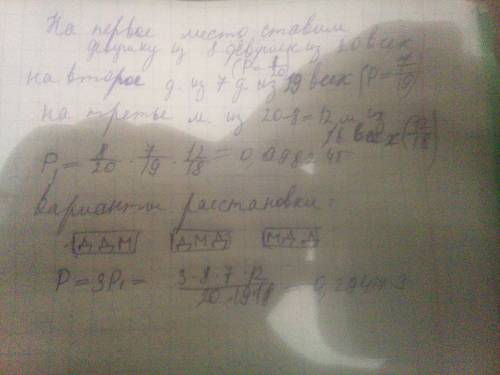 На первое место ставим
девушку из 8 девушек из 20 всех
(P = 8/20)
на второе д. из 7 д. из 19 всех (P = 7/19)
на третье м. из 20-8=12 м. из
18 всех (12/18)
P₁ = 8/20 · 7/19 · 12/18 = 0,098245
Варианты расстановки:
ДДМ ДМД МДД
P = 3P₁ = 3·8·7·12/20·19·18 = 0,2947